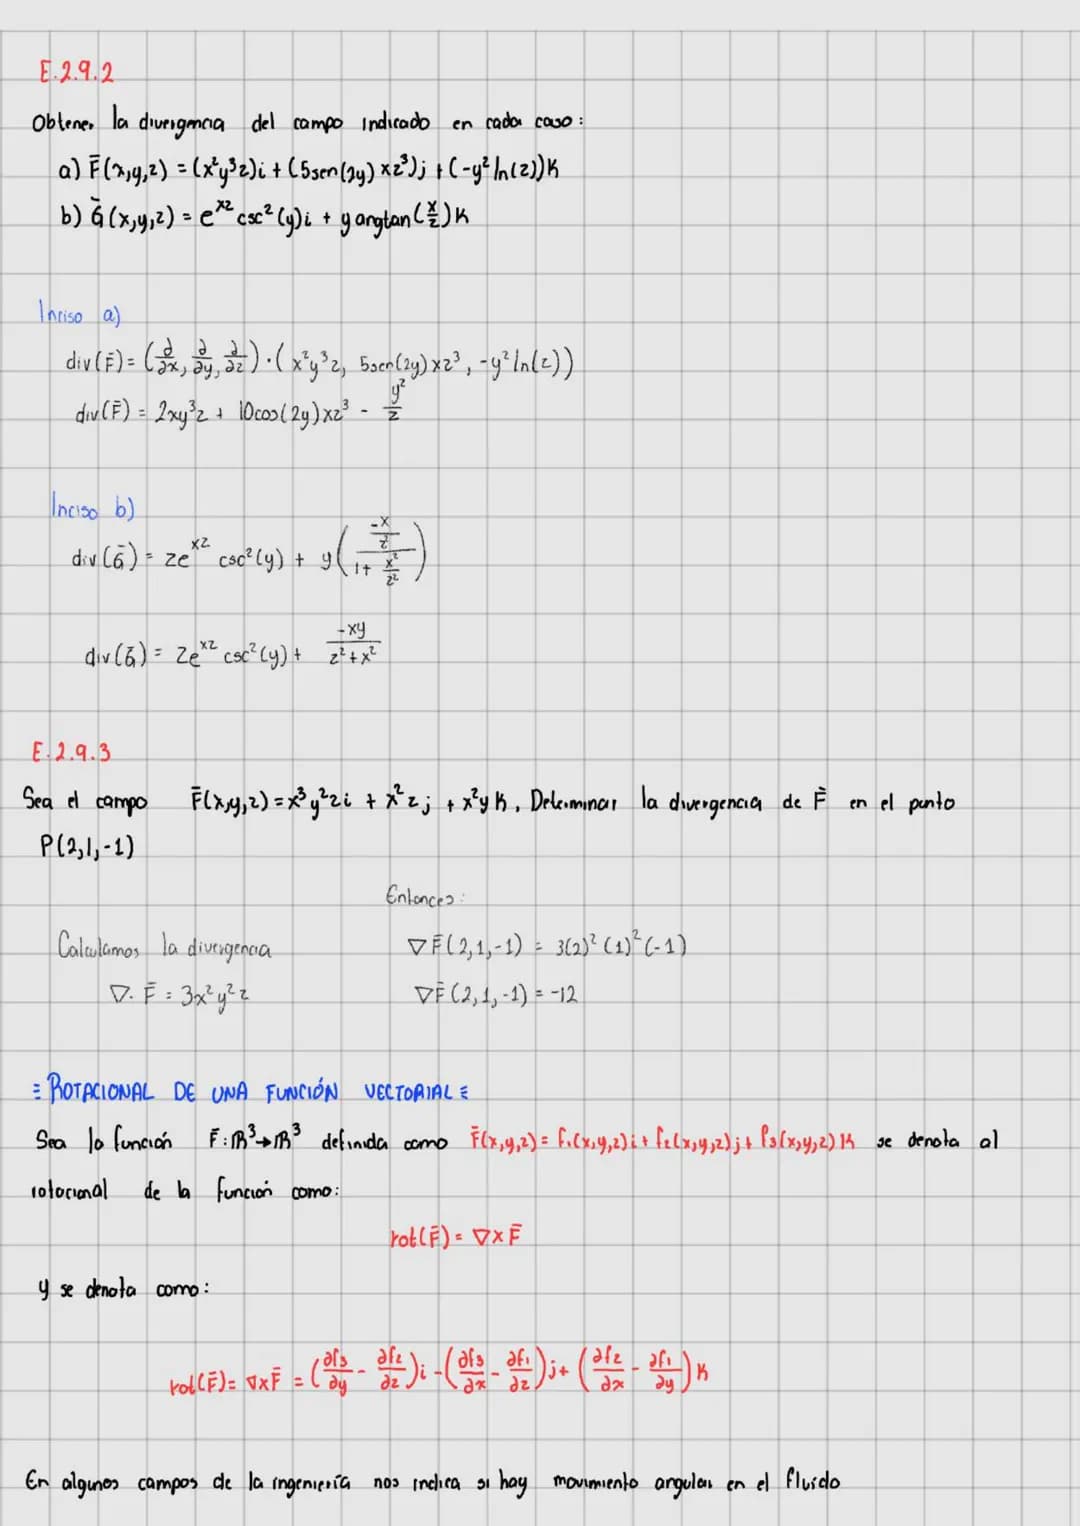 E.2.9.2
Obtener la divergencia del campo indicado en cada caso:
a) F̄(x,y,z) = (x²y³z)i + (5sen(2y)xz³)j + (-y² ln(z))k
b) Ḡ(x,y,z) = e^{xz} csc²(y)i + y angtan(x/z)k
Inciso a)
div(F̄) = (∂/∂x, ∂/∂y, ∂/∂z)·(x²y³z, 5sen(2y)xz³, -y² ln(z))
div(F̄) = 2xy³z + 10cos(2y)xz³ - y²/z
Inciso b)
div(Ḡ) = ze^{xz} csc²(y) + y((-x/z²)/(1 + x²/z²))
div(Ḡ) = ze^{xz} csc²(y) + -xy/(z²+x²)
E.2.9.3
Sea el campo F̄(x,y,z) = x³y²zi + x²zj + x²yk, Determinar la divergencia de F̄ en el punto
P(2,1,-1)
Calculamos la divergencia
∇·F̄ = 3x²y²z
Entonces:
∇F̄(2,1,-1) = 3(2)²(1)²(-1)
∇F̄(2,1,-1) = -12
≡ ROTACIONAL DE UNA FUNCIÓN VECTORIAL ≡
Sea la función F̄: ℝ³→ℝ³ definida como F̄(x,y,z) = f₁(x,y,z)i + f₂(x,y,z)j + f₃(x,y,z)k se denota al
rotacional de la función como:
rot(F̄) = ∇×F̄
y se denota como:
rot(F̄) = ∇×F̄ = (∂f₃/∂y - ∂f₂/∂z)i - (∂f₃/∂x - ∂f₁/∂z)j + (∂f₂/∂x - ∂f₁/∂y)k
En algunos campos de la ingeniería nos indica si hay movimiento angular en el fluido